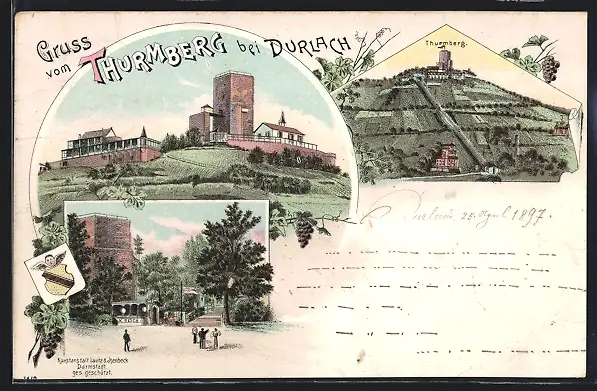 Gruss
vom THURMBERG bei DURLACH
Thurmberg.
Durlach 25. April 1897.
Kunstanstalt Lautz & Isenbeck
Darmstadt.
ges. geschützt.